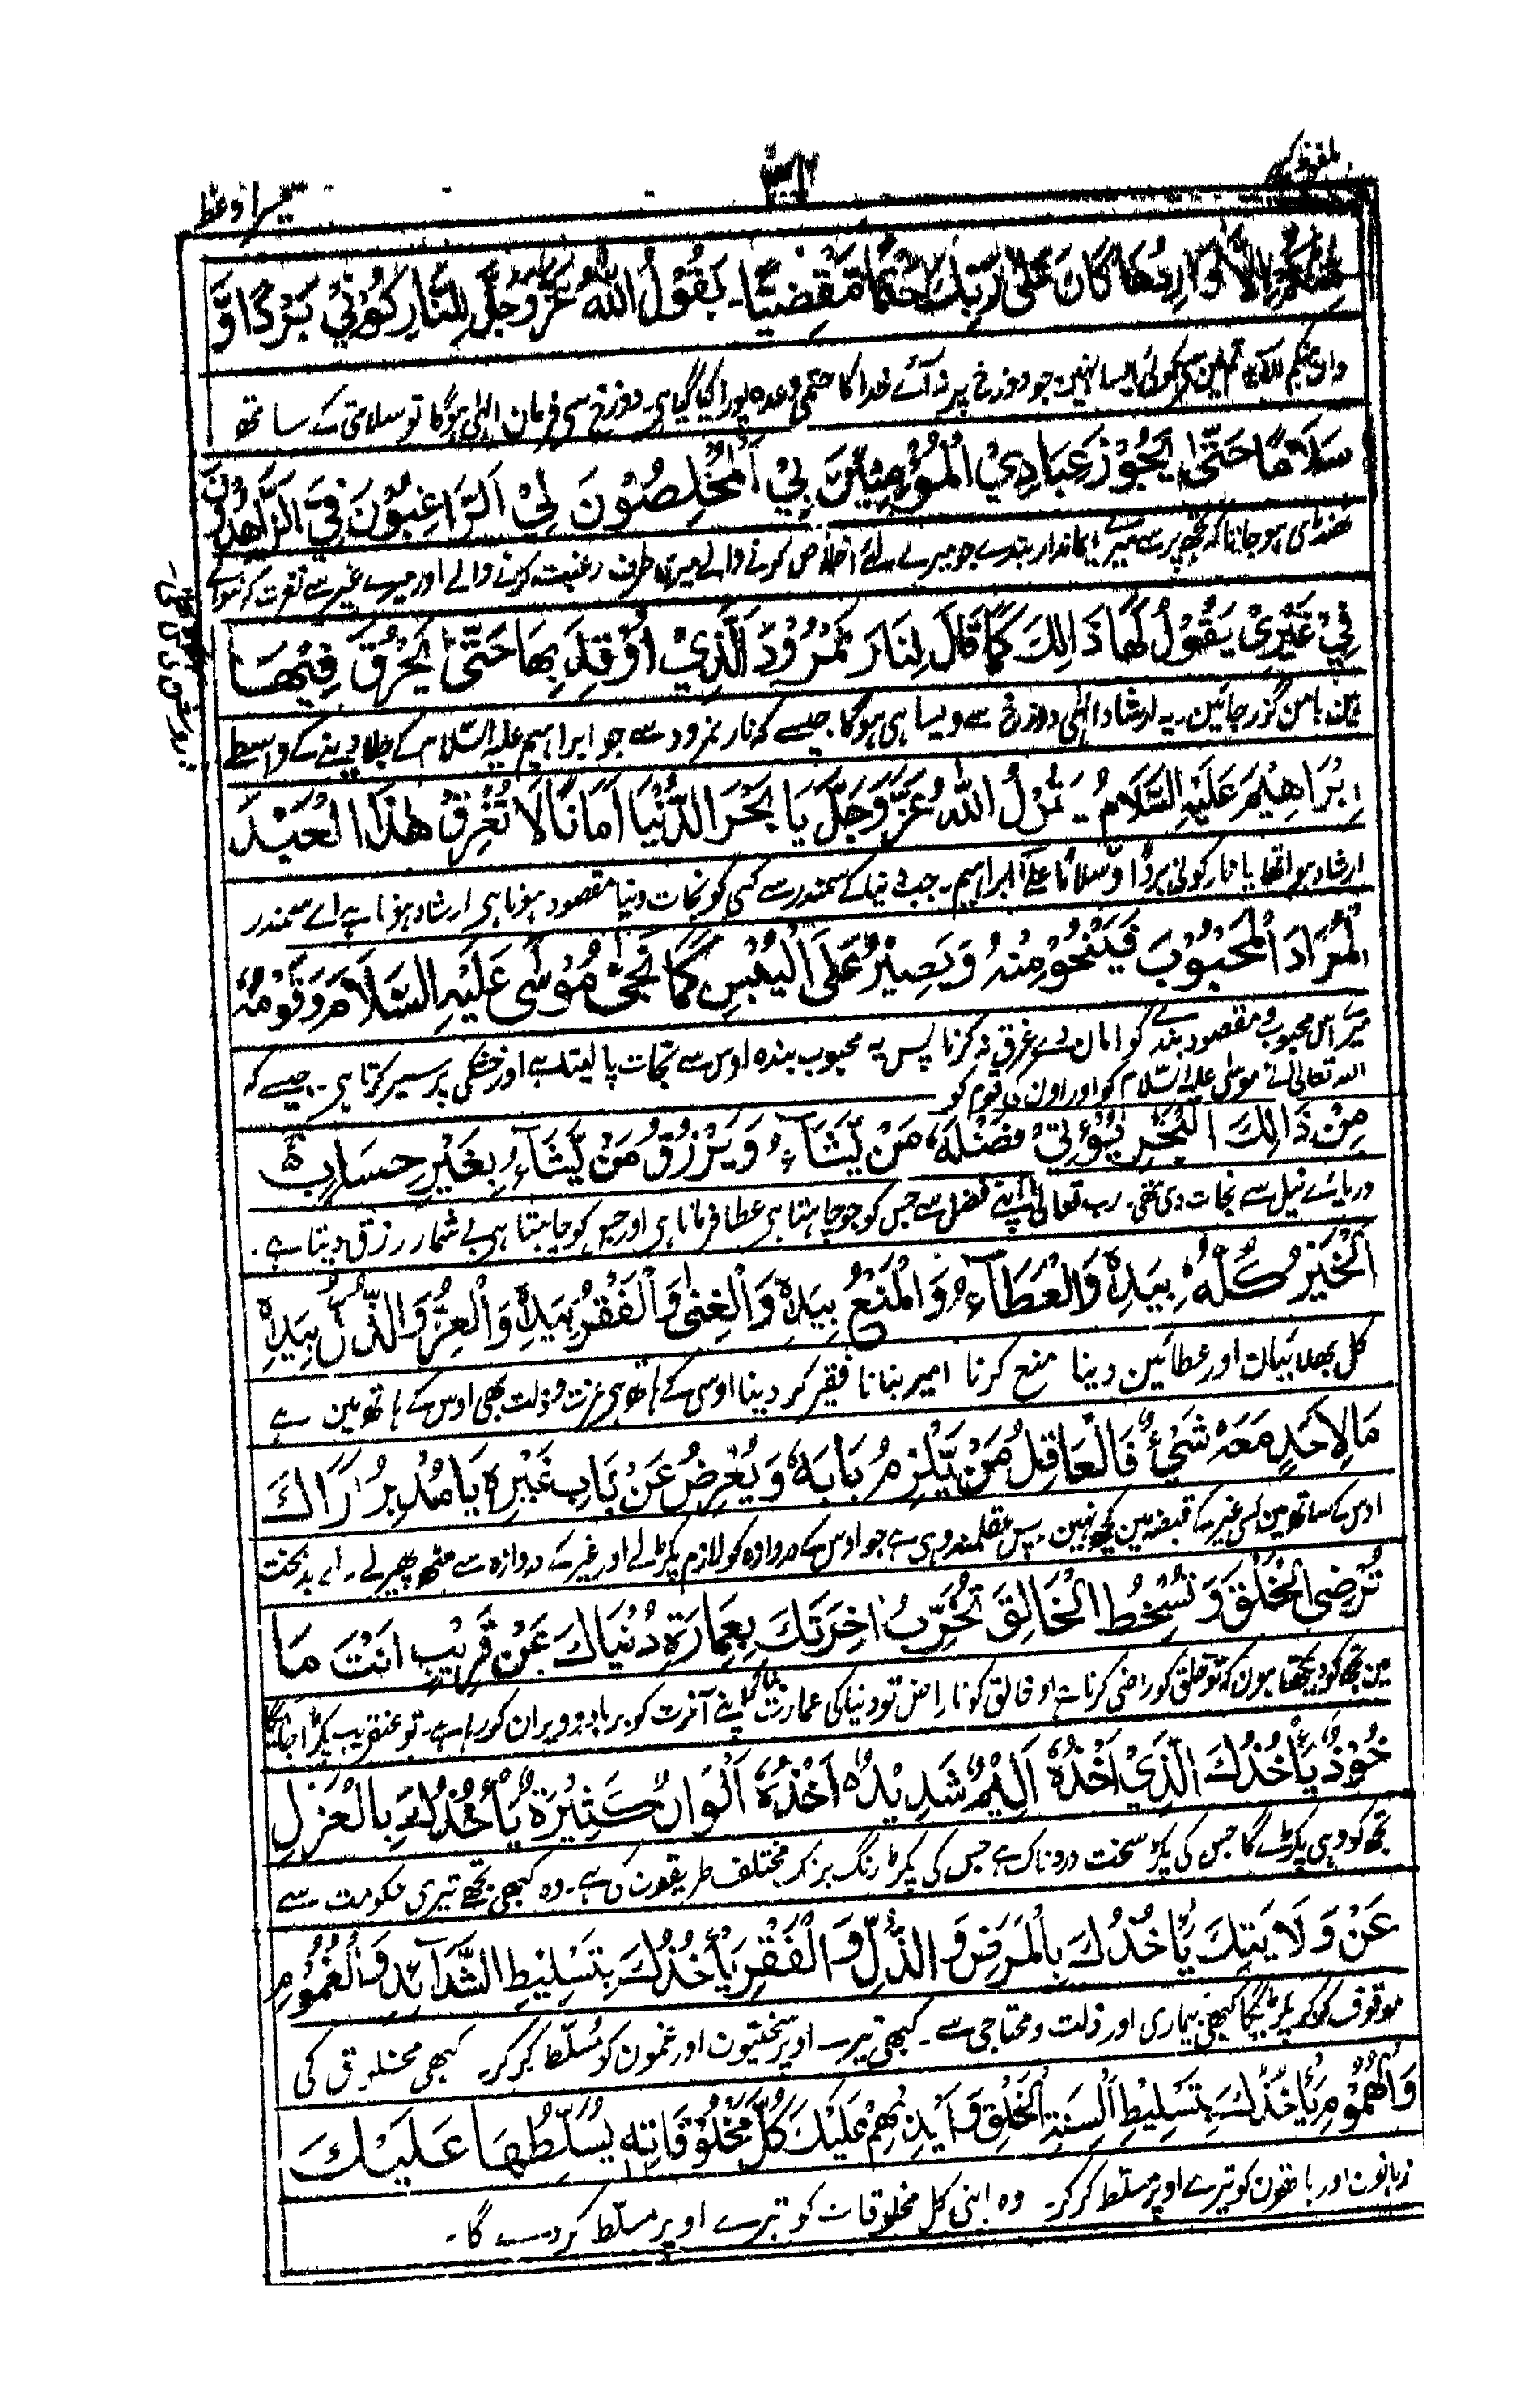 ملفوظ کبیر
تیسرا وعظ
مِنْكُمْ اِلَّا وَارِدُهَا كَانَ عَلٰى رَبِّكَ حَتْمًا مَّقْضِيًّا۔ يَقُوْلُ اللّٰهُ عَزَّ وَجَلَّ لِلنَّارِ كُوْنِيْ بَرْدًا وَّ
تم میں کوئی ایسا نہیں جو دوزخ پر نہ آئے خدا کا حتمی وعدہ پورا کیا گیا ہے۔ دوزخ سے فرمان الٰہی ہوگا تو سلامتی کے ساتھ
سَلَامًا حَتّٰى يَجُوْزَ عِبَادِيْ الْمُؤْمِنِيْنَ بِيْ اَلْمُخْلِصُوْنَ لِيْ اَلرَّاغِبُوْنَ فِيَّ الزَّاهِدُوْنَ
ٹھنڈی ہو جانا کہ تجھ پر سے میرے ایماندار بندے جو میرے لئے اخلاص کرنے والے میری طرف رغبت کرنے والے اور میرے غیر سے نفرت کرنیوالے
فِيْ غَيْرِيْ يَقُوْلُ لَهَا ذَالِكَ كَمَا قَالَ لِنَارِ نَمْرُوْدَ الَّذِيْ اُوْقِدَ بِهَا حَتّٰى يَحْرُقَ فِيْهَا
ہین بامن گزر جائین۔ یہ ارشاد الٰہی دوزخ سے ویسا ہی ہوگا جیسے کہ نار نمرود سے جو ابراہیم علیہ السّلام کے جلا دینے کے واسطے
اِبْرَاهِيْمَ عَلَيْهِ السَّلَامُ۔ يَقُوْلُ اللّٰهُ عَزَّ وَجَلَّ يَا بَحْرَ الدُّنْيَا اَمَانًا لَا تُغْرِقْ هٰذَا الْعَبْدَ
ارشاد ہوا تھا یا نار کونی بردًا وّسلامًا علےٰ ابراہیم۔ جب دنیا کے سمندر سے کسی کو نجات دینا مقصود ہوتا ہے ارشاد ہوتا ہے اے سمندر
الْمُرَادَ الْمَحْبُوْبَ فَيَنْجُوْ مِنْهُ وَيَصِيْرُ عَلَى الْيُبْسِ كَمَا نَجّٰى مُوْسٰى عَلَيْهِ السَّلَامُ وَقَوْمَهٗ
میرے اس محبوب و مقصود بندے کو امان دے غرق نہ کرنا پس یہ محبوب بندہ اوس سے نجات پا لیتا ہے اور خشکی پر سیر کرتا ہے۔ جیسے کہ
اللہ تعالیٰ نے موسٰی علیہ السّلام کو اور اون کی قوم کو
مِنْ ذَالِكَ الْبَحْرِ يُؤْتِيْ فَضْلَهٗ مَنْ يَّشَآءُ وَيَرْزُقُ مَنْ يَّشَآءُ بِغَيْرِ حِسَابٍ
دریائے نیل سے نجات دی تھی۔ رب تعالیٰ اپنے فضل سے جس کو جو چاہتا ہے عطا فرماتا ہے اور جس کو چاہتا ہے بے شمار رزق دیتا ہے۔
اَلْخَيْرُ كُلُّهٗ بِيَدِهٖ وَالْعَطَآءُ وَالْمَنْعُ بِيَدِهٖ وَالْغِنٰى وَالْفَقْرُ بِيَدِهٖ وَالْعِزُّ وَالذُّلُّ بِيَدِهٖ
کل بھلائیان اور عطائین دینا منع کرنا امیر بنانا فقیر کر دینا اوسی کے ہاتھ ہے عزت و ذلت بھی اوس کے ہاتھ مین ہے
مَا لِاَحَدٍ مَعَهٗ شَيْءٌ فَالْعَاقِلُ مَنْ يَّلْزِمُ بَابَهٗ وَيُعْرِضُ عَنْ بَابِ غَيْرِهٖ يَا مُدْبِرُ اَرَاكَ
اوس کے ساتھ مین کسی غیر کے قبضہ مین کچھ نہین۔ پس عقلمند وہی ہے جو اوس کے دروازہ کو لازم پکڑ لے اور غیر کے دروازہ سے منھ پھیر لے۔ اے بدبخت
تُرْضِي الْخَلْقَ وَتُسْخِطُ الْخَالِقَ تُخَرِّبُ اٰخِرَتَكَ بِعِمَارَةِ دُنْيَاكَ عَنْ قَرِيْبٍ اَنْتَ مَا
مین تجھ کو دیکھتا ہون کہ تو خلق کو راضی کرتا ہے او خالق کو ناراض تو دنیا کی عمارت بنا کر اپنے آخرت کو برباد و ویران کر رہا ہے۔ تو عنقریب پکڑا جائیگا
خُوْذٌ يَأْخُذُكَ الَّذِيْ اَخْذُهٗ اَلِيْمٌ شَدِيْدٌ اَخْذُهٗ اَلْوَانٌ كَثِيْرَةٌ يَأْخُذُكَ بِالْعَزْلِ
تجھ کو وہی پکڑے گا جس کی پکڑ سخت دردناک ہے جس کی پکڑ رنگ برنگ مختلف طریقون کی ہے۔ وہ کبھی تجھے تیری حکومت سے
عَنْ وَلَايَتِكَ يَأْخُذُكَ بِالْمَرَضِ وَالذُّلِّ وَالْفَقْرِ يَأْخُذُكَ بِتَسْلِيْطِ الشَّدَآئِدِ وَالْغُمُوْمِ
موقوف کر کر پکڑیگا کبھی بیماری اور ذلت و محتاجی سے۔ کبھی تیرے اوپر سختیون اور غمون کو مُسلّط کر کر۔ کبھی مخلوق کی
وَالْهُمُوْمِ يَأْخُذُكَ بِتَسْلِيْطِ اَلْسِنَةِ الْخَلْقِ وَاَيْدِيْهِمْ عَلَيْكَ كُلُّ مَخْلُوْقَاتِهٖ يُسَلِّطُهَا عَلَيْكَ
زبانون اور ہاتھون کو تیرے اوپر مسلّط کر کر۔ وہ اپنی کل مخلوقات کو تیرے اوپر مسلّط کر دے گا۔